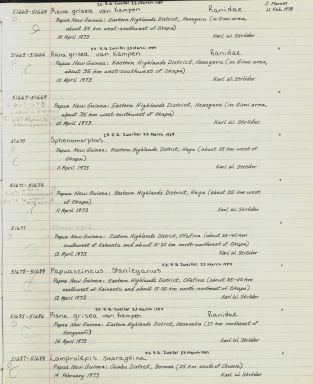 I.D. R.G. Zweifel 23 March 1984
J. Menzies
51663-51664 Rana grisea van Kampen Ranidae 11 Feb. 1974
Papua New Guinea: Eastern Highlands District, Henegaru (in Gimi area,
about 35 km west-southwest of Okapa)
10 April 1973 Karl W. Ströder
I.D. R.G. Zweifel 23 March 1984
51665-51666 Rana grisea van Kampen Ranidae "
Papua New Guinea: Eastern Highlands District, Henegaru (in Gimi area,
about 35 km west-southwest of Okapa)
10 April 1973 Karl W. Ströder
51667-51669 "
Papua New Guinea: Eastern Highlands District, Henegaru (in Gimi area,
about 35 km west-southwest of Okapa)
10 April 1973 Karl W. Ströder
I.D. R.G. Zweifel 23 March 1984
51670 Sphenomorphus "
Papua New Guinea: Eastern Highlands District, Haga (about 25 km west of
Okapa)
11 April 1973 Karl W. Ströder
51671-51676 "
Papua New Guinea: Eastern Highlands District, Haga (about 25 km west
of Okapa)
11 April 1973 Karl W. Ströder
51677 "
Papua New Guinea: Eastern Highlands District, Ofafina (about 35-40 km
southwest of Kainantu and about 15-20 km north-northeast of Okapa)
13 April 1973 Karl W. Ströder
I.D. R.G. Zweifel 23 March 1984
51678-51684 Papuascincus stanleyanus "
Papua New Guinea: Eastern Highlands District, Ofafina (about 35-40 km
southwest of Kainantu and about 15-20 km north-northeast of Okapa)
13 April 1973 Karl W. Ströder
I.D. R.G. Zweifel 23 March 1984
51685-51686 Rana grisea van Kampen Ranidae "
Papua New Guinea: Eastern Highlands District,
16 April 1973 Karl W. Ströder
I.D. R.G. Zweifel 23 March 1984
51687-51688 Lamprolepis smaragdina "
Papua New Guinea: Chimbu District,
19 February 1973 Karl W. Ströder